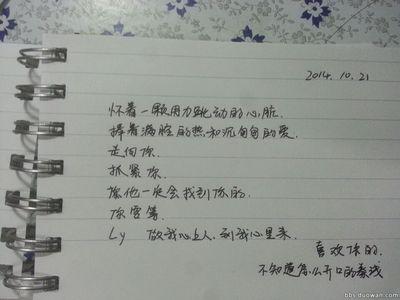 2014.10.21
怀着一颗用力跳动的心脏.
捧着满腔的热和沉甸甸的爱.
走向你.
抓紧你.
总有一天会找到你的.
你要等.
Ly 做我心上人.到我心里来.
喜欢你的.
不知道怎么开口的
bbs.duowan.com